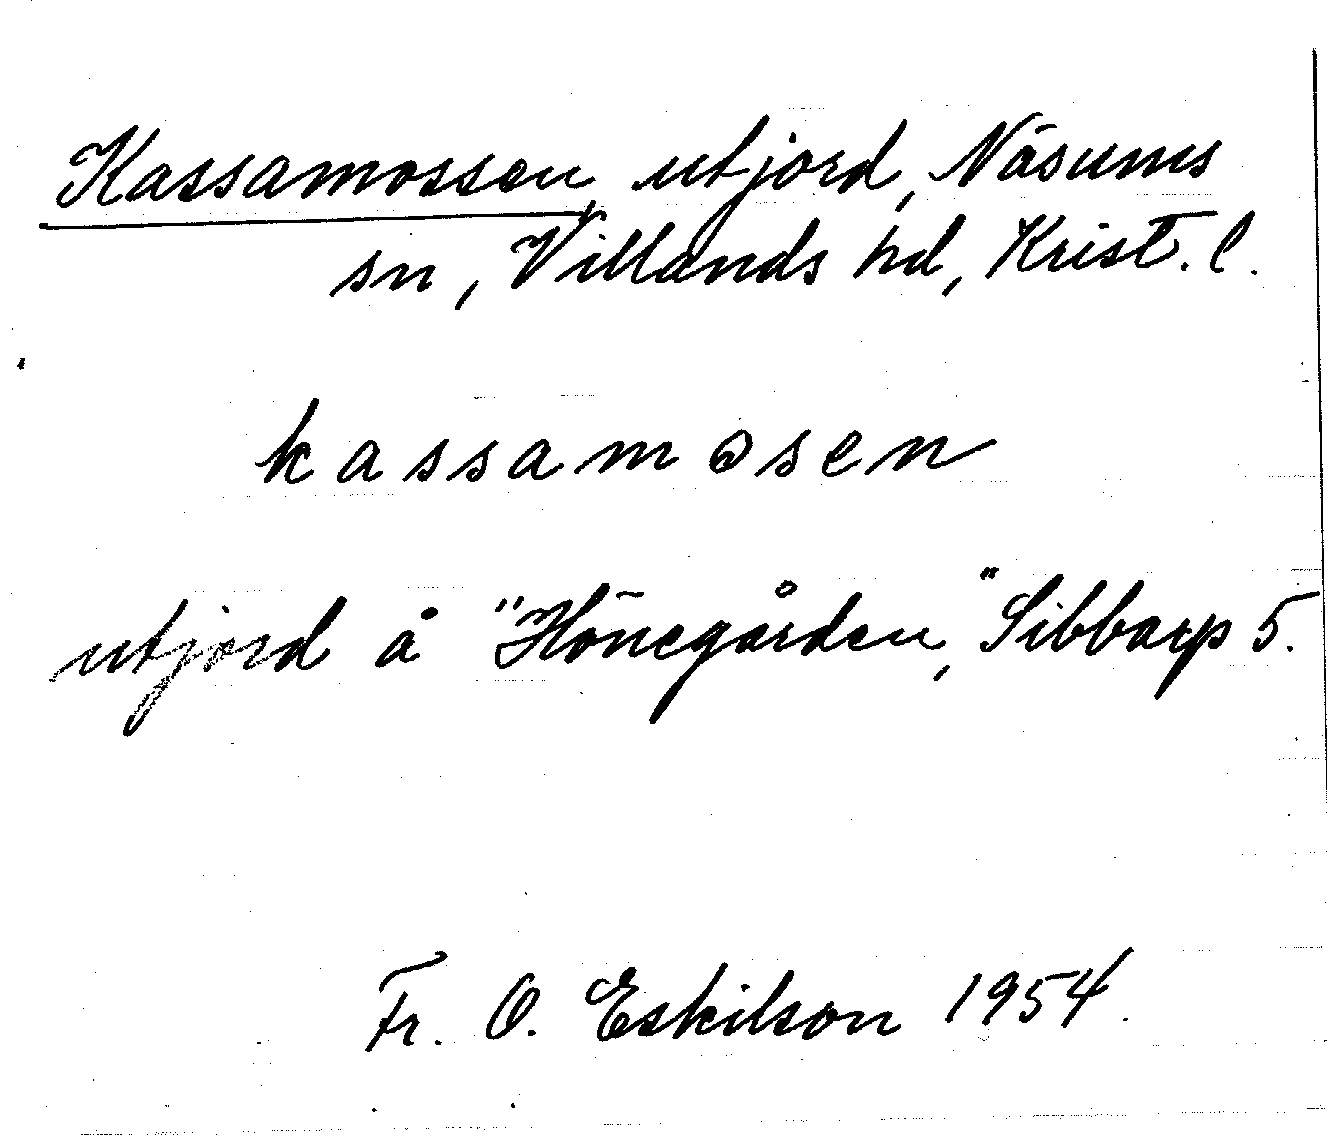 Kassamossen, utjord, Näsums
sn, Villands hd, Krist. l.
kassamosen
utjord å "Hönegården," Sibbarp 5.
Fr. O. Eskilson 1954.